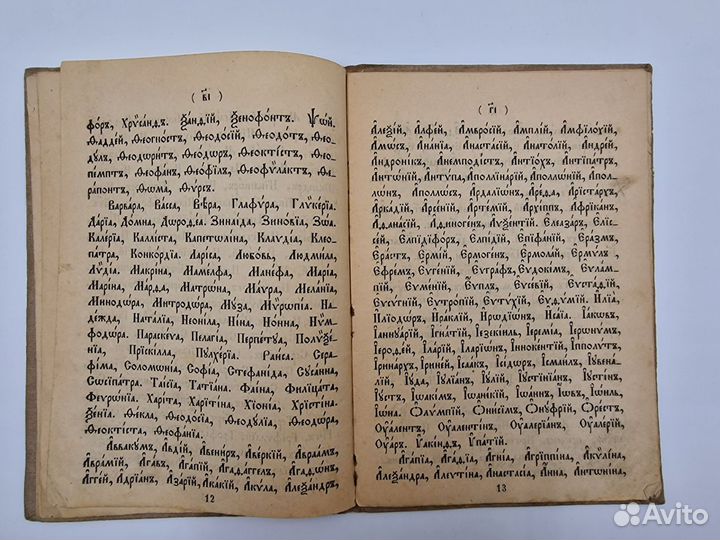 ( в҃і )
фо́ръ, Хрѷса́нѳъ. Ѯа́нѳїй, Ѯенофо́нтъ. Ѱо́й.
Ѳадде́й, Ѳеогно́стъ, Ѳеодо́сїй, Ѳеодо́тъ, Ѳео-
ду́лъ, Ѳеодори́тъ, Ѳео́дѡръ, Ѳеокти́стъ, Ѳео-
пе́мптъ, Ѳеофа́нъ, Ѳео́філъ, Ѳеофѷла́ктъ, Ѳе-
ра́понтъ, Ѳѡма̀, Ѳѵ́рсъ.
Варва́ра, Ва́сса, Вѣ́ра, Глафѵ́ра, Глѷке́рїа.
Да́рїа, До́мна, Дѡроѳе́а. Зинаи́да, Зино́вїа, Зѡ́а.
Кале́рїа, Каллі́ста, Капетѡли́на, Клаѵ́дїа, Клео-
па́тра, Конко́рдїа. Лари́са, Любо́вь, Людми́ла,
Лѷді́а. Макри́на, Маме́лфа, Мане́фа, Марі́а,
Мари́на, Ма́рѳа, Матрѡ́на, Ма́ѵра, Мела́нїа,
Минодѡ́ра, Митродѡ́ра, Мѵ́за, Мѷрѡ́пїа. На-
де́жда, Ната́лїа, Неѡні́ла, Ні́на, Но́нна, Нѷм-
фодѡ́ра. Параске́ва, Пелагі́а, Перпе́тѵа, Полѷѯе́-
нїа, Прїскі́лла, Пѹлхе́рїа. Раи́са. Сера-
фі́ма, Соломѡні́а, Софі́а, Стефани́да, Сѹса́нна,
Сѡсїпа́тра. Таі́сїа, Татїа́на. Фаи́на, Філица́та,
Феѵрѡ́нїа. Харі́та, Харїті́на, Хїо́нїа, Хрїсті́на.
Ѯе́нїа. Ѳе́кла, Ѳеодо́сїа, Ѳеодѹ́лїа, Ѳеодѡ́ра,
Ѳеокти́ста, Ѳеофа́нїа.
А҆вваку́мъ, А҆вді́й, А҆вени́ръ, А҆ве́ркїй, А҆враа́мъ,
А҆вра́мїй, А҆га́въ, А҆га́пїй, А҆гаѳа́ггелъ, А҆гаѳѡ́нъ,
А҆гге́й, А҆дрїа́нъ, А҆за́рїй, А҆ка́кїй, А҆кѵ́ла, А҆леѯа́ндръ,
12
( г҃і )
А҆леѯі́й, А҆лфе́й, А҆мвро́сїй, А҆мплі́й, А҆мфїло́хїй,
А҆мѡ́съ, А҆на́нїа, А҆наста́сїй, А҆нато́лїй, А҆ндре́й,
А҆ндрони́къ, А҆немподі́стъ, А҆нтїо́хъ, А҆нтїпа́тръ,
А҆нтѡ́нїй, А҆нті́па, А҆поллїна́рїй, А҆поллѡ́нїй,
А҆поллѡ́нъ, А҆поллѡ́съ, А҆рдалїѡ́нъ, А҆ре́ѳа, А҆рїста́рхъ,
А҆рка́дїй, А҆рсе́нїй, А҆рте́мїй, А҆рхі́ппъ, А҆фрїка́нъ,
А҆ѳана́сїй, А҆ѳиноге́нъ, А҆ѵѯе́нтїй. Е҆леаза́ръ, Е҆лїс-
се́й, Е҆лпїдїфо́ръ, Е҆лпі́дїй, Е҆пїфа́нїй, Е҆ра́змъ,
Е҆ра́стъ, Е҆рмі́й, Е҆рмоге́нъ, Е҆рмола́й, Е҆рмѵ́лъ,
Е҆фре́мъ, Е҆ѵге́нїй, Е҆ѵгра́фъ, Е҆ѵдокі́мъ, Е҆ѵла́м-
пїй, Е҆ѵме́нїй, Е҆ѵпл́ъ, Е҆ѵсе́вїй, Е҆ѵста́ѳїй,
Е҆ѵсѵ́гнїй, Е҆ѵтро́пїй, Е҆ѵтѵ́хїй, Е҆ѵѳѵ́мїй. И҆лїа̀,
И҆лїодѡ́ръ, И҆ра́клїй, И҆рѡдїѡ́нъ, И҆са́їа. І҆а́кѡвъ,
І҆аннѹа́рїй, І҆гна́тїй, І҆езекі́иль, І҆еремі́а, І҆ерѡ́нѵмъ,
І҆ероѳе́й, І҆ла́рїй, І҆ларїѡ́нъ, І҆нноке́нтїй, І҆пполѵ́тъ,
І҆рина́рхъ, І҆рине́й, І҆саа́къ, І҆сі́дѡръ, І҆сма́илъ, І҆ѹвена́-
лїй, І҆ѹ́да, І҆ѹлїа́нъ, І҆ѹ́лїй, І҆ѹстїнїа́нъ, І҆ѹсті́нъ,
І҆ѹ́стъ, І҆ѡакі́мъ, І҆ѡанні́кїй, І҆ѡа́ннъ, І҆ѡ́въ, І҆ѡи́ль,
І҆ѡ́на. Ѻ҆лѵмпі́й, Ѻ҆ни́сімъ, Ѻ҆нѹ́фрїй, Ѻ҆ре́стъ,
Ѹ҆а́лентъ, Ѹ҆аленті́нъ, Ѹ҆алерїа́нъ, Ѹ҆але́рїй,
Ѹ҆а́ръ. Ѵ҆акі́нѳъ, Ѵ҆па́тїй.
А҆га́пїа, А҆га́ѳїа, А҆гні́а, А҆грїппі́на, А҆кѷлі́на,
А҆леѯа́ндра, А҆леѵті́на, А҆настасі́а, А҆́нна, А҆нтѡні́на,
13
Avito